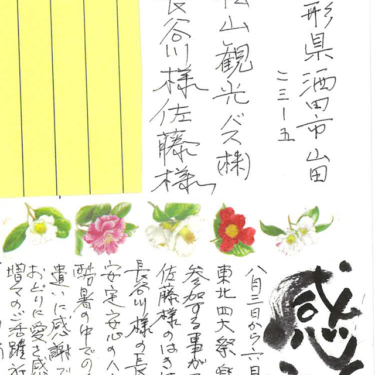 形県酒田市山田
二三ー五
松山観光バス㈱
長谷川様佐藤様
感
八月三日から六日
東北四大祭
参加する事が
佐藤様のはき
長谷川様の長
安定安心の人
酷暑の中での
遣いに感謝で
おどりに愛き感
増々のご活躍祈